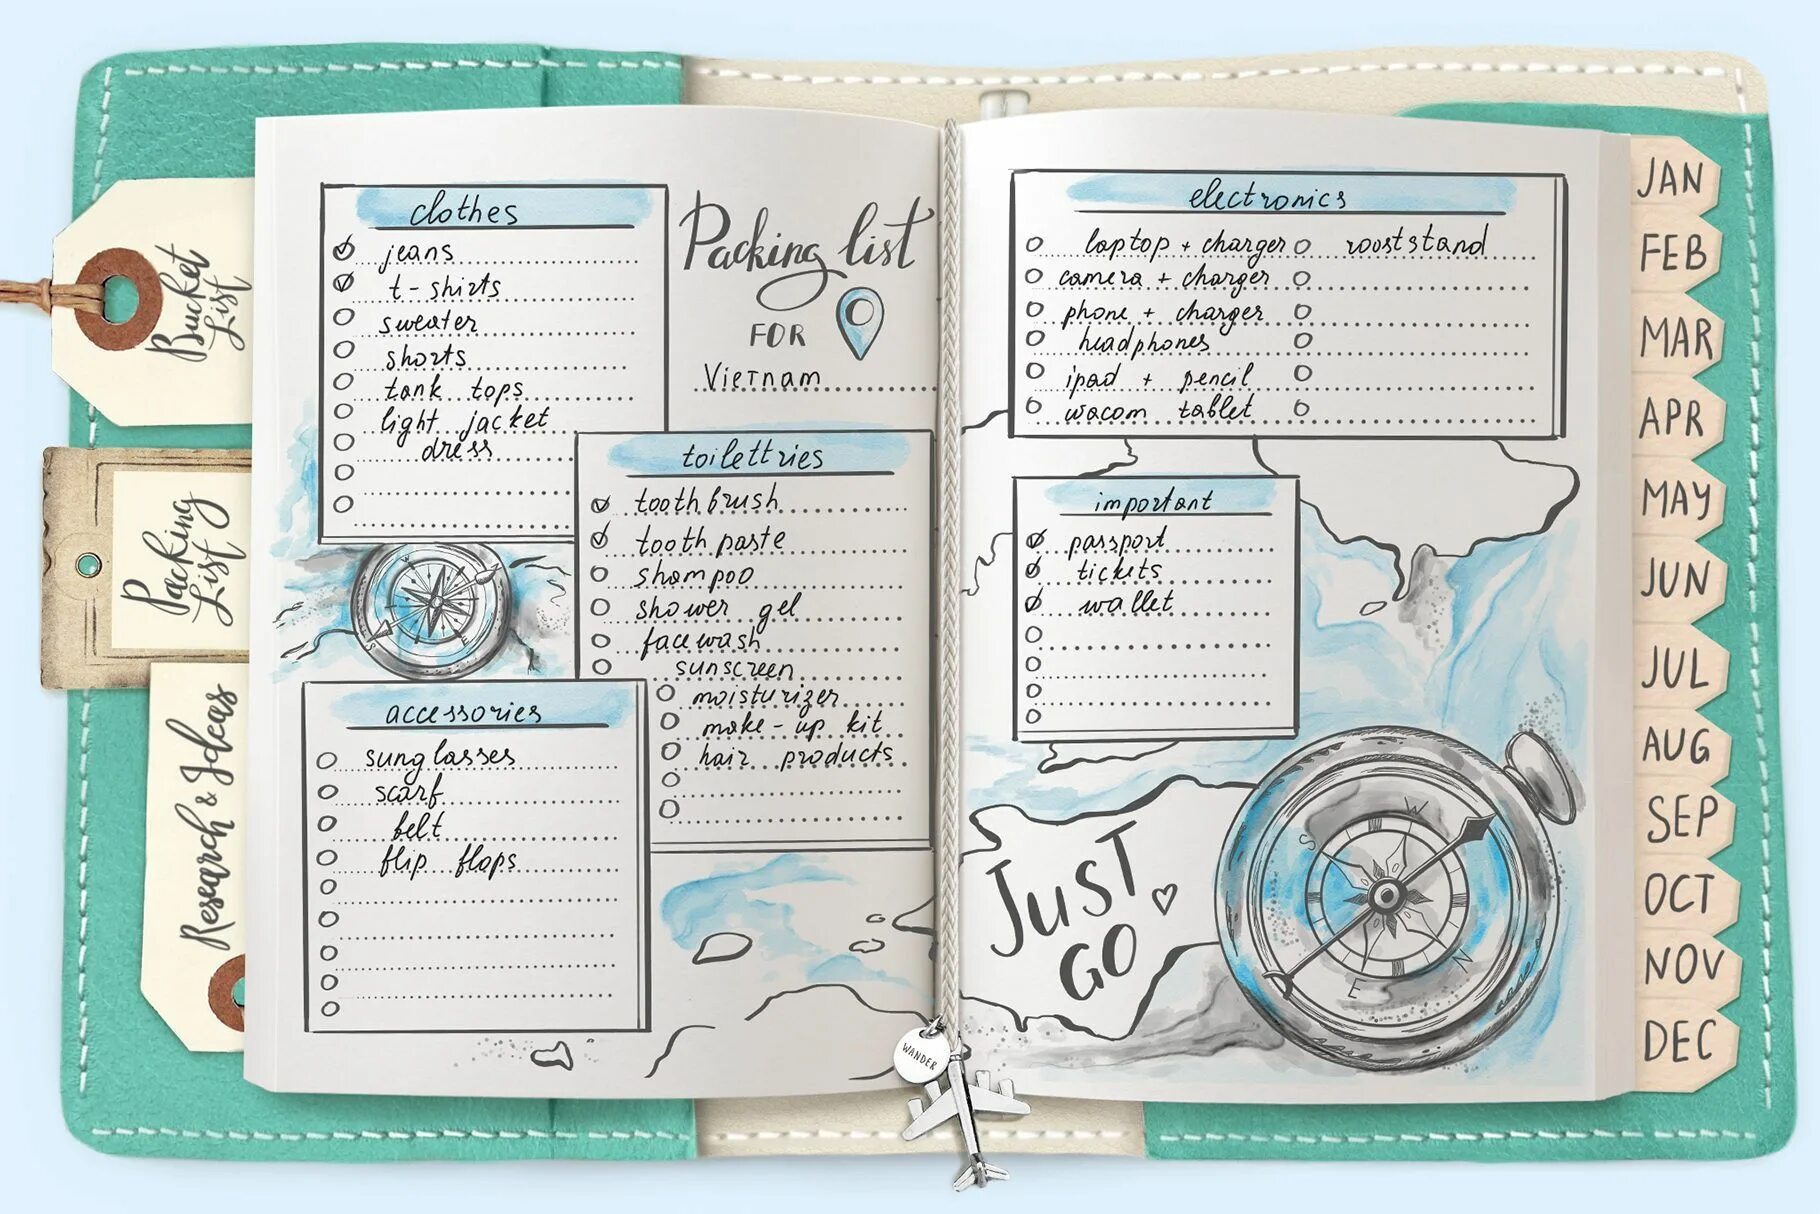 Bucket
List
Packing
List
Research & Ideas
clothes
jeans
t-shirts
sweater
shorts
tank tops
light jacket
dress
Packing list
FOR
Vietnam
toilettries
toothbrush
tooth paste
shampoo
shower gel
face wash
sunscreen
moisturizer
make-up kit
hair products
accessories
sunglasses
scarf
belt
flip flops
WANDER
electronics
laptop + charger
rooststand
camera + charger
phone + charger
headphones
ipad + pencil
wacom tablet
important
passport
tickets
wallet
JUST
GO
S
W
E
N
JAN
FEB
MAR
APR
MAY
JUN
JUL
AUG
SEP
OCT
NOV
DEC